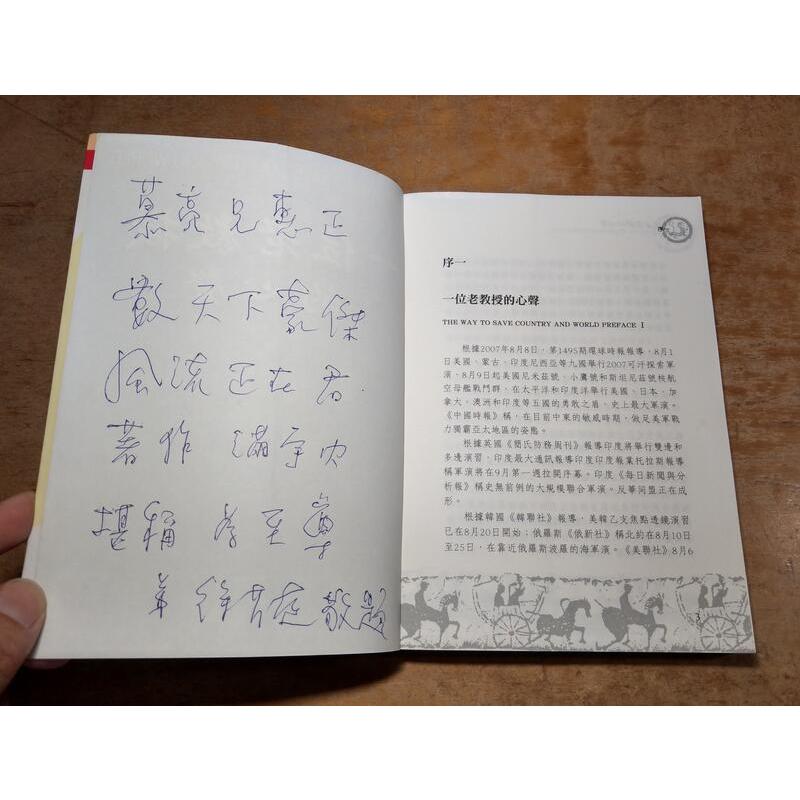 慕亮兄惠正
數天下豪傑
風流正在君
著作滿宇內
堪稱孝至尊
弟徐 敬題
序一
一位老教授的心聲
THE WAY TO SAVE COUNTRY AND WORLD PREFACE I
根據2007年8月8日,第1495期環球時報報導,8月1
日美國、蒙古、印度尼西亞等九國舉行2007可汗探索軍
演、8月9日起美國尼米茲號、小鷹號和斯坦尼茲號核航
空母艦戰鬥群,在太平洋和印度洋舉行美國、日本、加
拿大、澳洲和印度等五國的勇敢之盾、史上最大軍演。
《中國時報》稱,在目前中東的敏感時期,做足美軍戰
力獨霸亞太地區的姿態。
根據英國《簡氏防務周刊》報導印度將舉行雙邊和
多邊演習,印度最大通訊報導印度印度報業托拉斯報導
稱軍演將在9月第一週拉開序幕。印度《每日新聞與分
析報》稱史無前例的大規模聯合軍演。反華同盟正在成
形。
根據韓國《韓聯社》報導,美韓乙支焦點透鏡演習
已在8月20日開始;俄羅斯《俄新社》稱北約在8月10日
至25日,在靠近俄羅斯波羅的海軍演。《美聯社》8月6
3